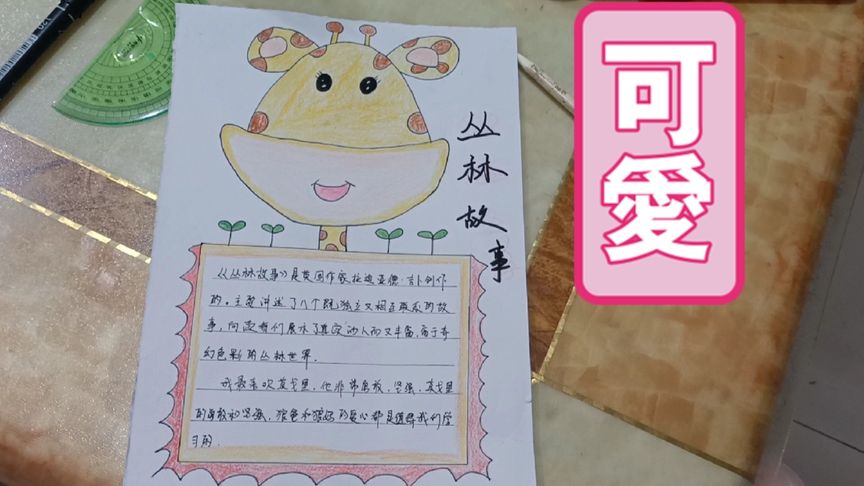 可愛
丛林故事
《丛林故事》是英国作家拉迪亚德·吉卜创作
的。主要讲述了八个既独立又相互联系的故
事,向读者们展示了真实动人而又丰富,富于奇
幻色彩的丛林世界.
我最喜欢莫戈里,他非常勇敢,坚强,莫戈里
的勇敢和坚强,狼爸和狼妈的爱心都是值得我们学
习的.